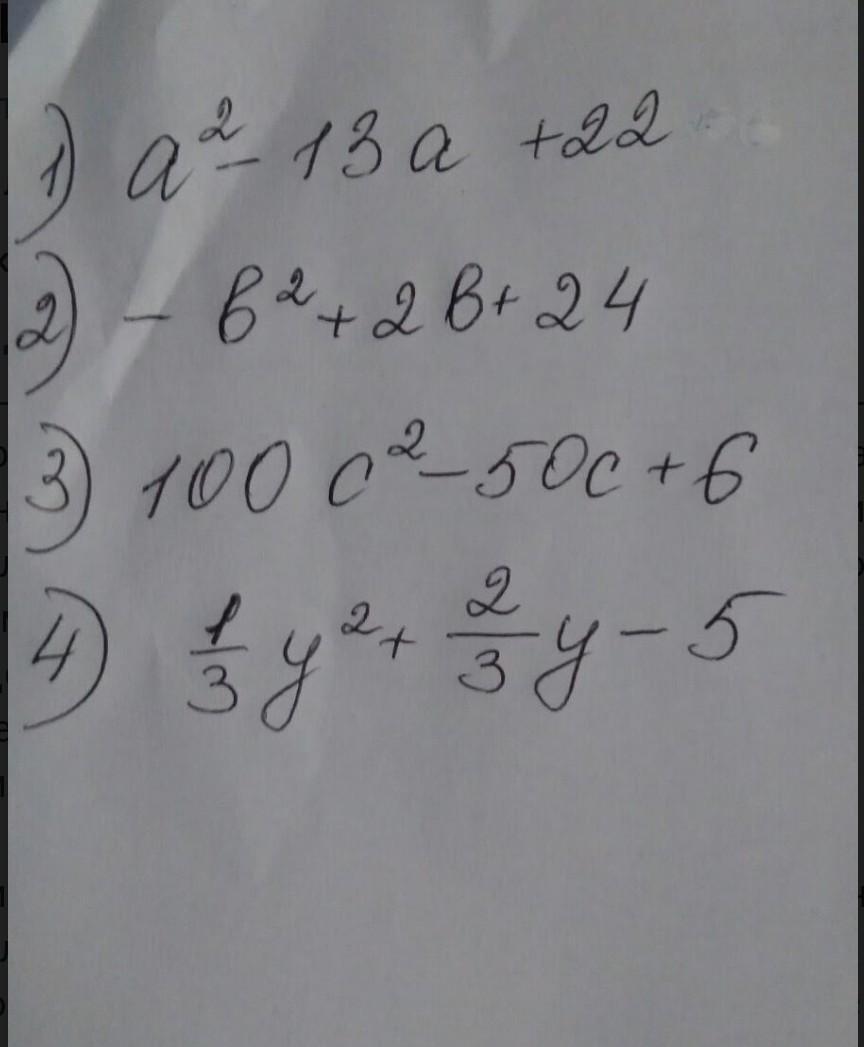 1) a² - 13a + 22
2) - b² + 2b + 24
3) 100 c² - 50c + 6
4) 1/3 y² + 2/3 y - 5